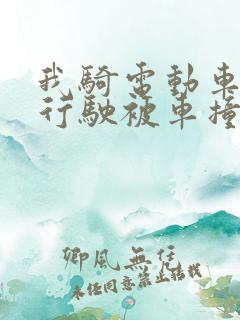 我騎電動車
行駛被車撞
卿風無恙
未任同意禁止结载